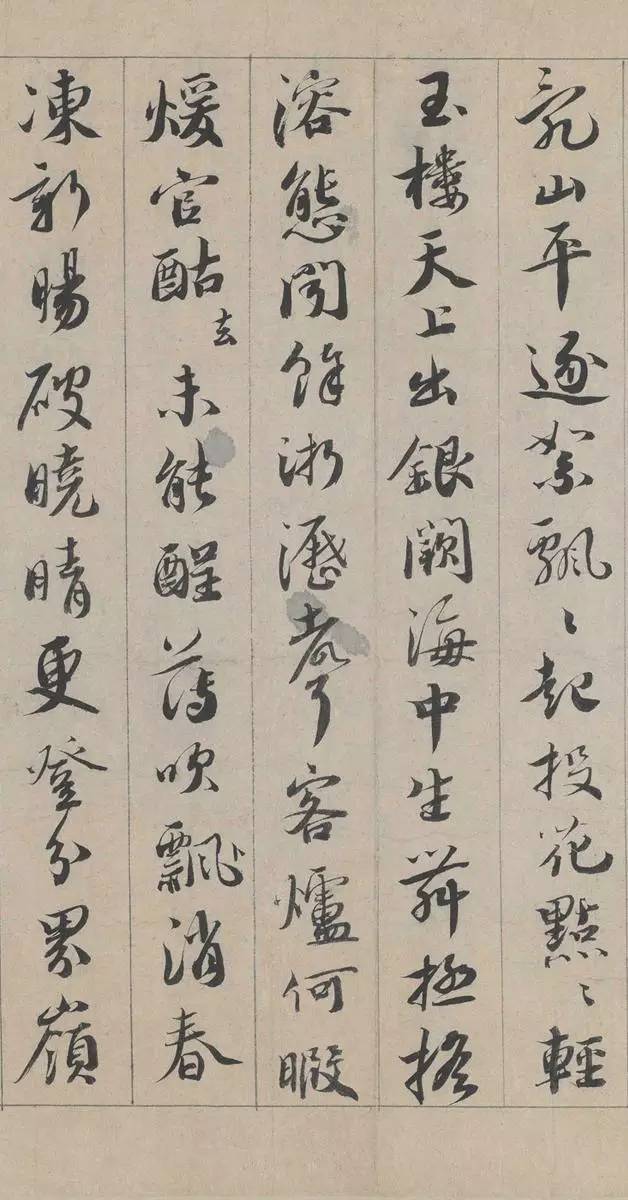 乱山平逐絮飄〻起投花點〻輕
玉樓天上出銀闕海中生舞極搖
溶態聞餘淅瀝聲客爐何暇
煖官酤去未能醒薄吹飄消春
凍新暘破曉晴更登分界嶺